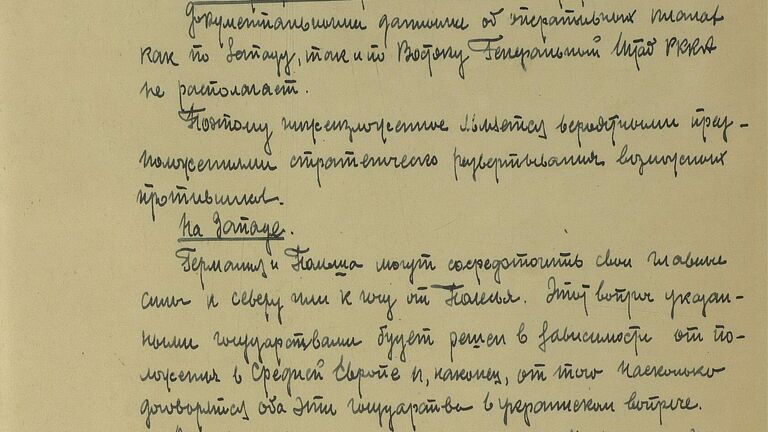 Документальными данными об оперативных планах
как по Западу, так и по Востоку Генеральный Штаб РККА
не располагает.
Поэтому нижеизложенное является вероятными пред-
положениями стратегического развертывания возможных
противников.
На Западе.
Германия и Польша могут сосредоточить свои главные
силы к северу или к югу от Полесья. Этот вопрос указан-
ными государствами будет решен в зависимости от по-
ложения в Средней Европе и, наконец, от того насколько
договорятся оба эти государства в украинском вопросе.